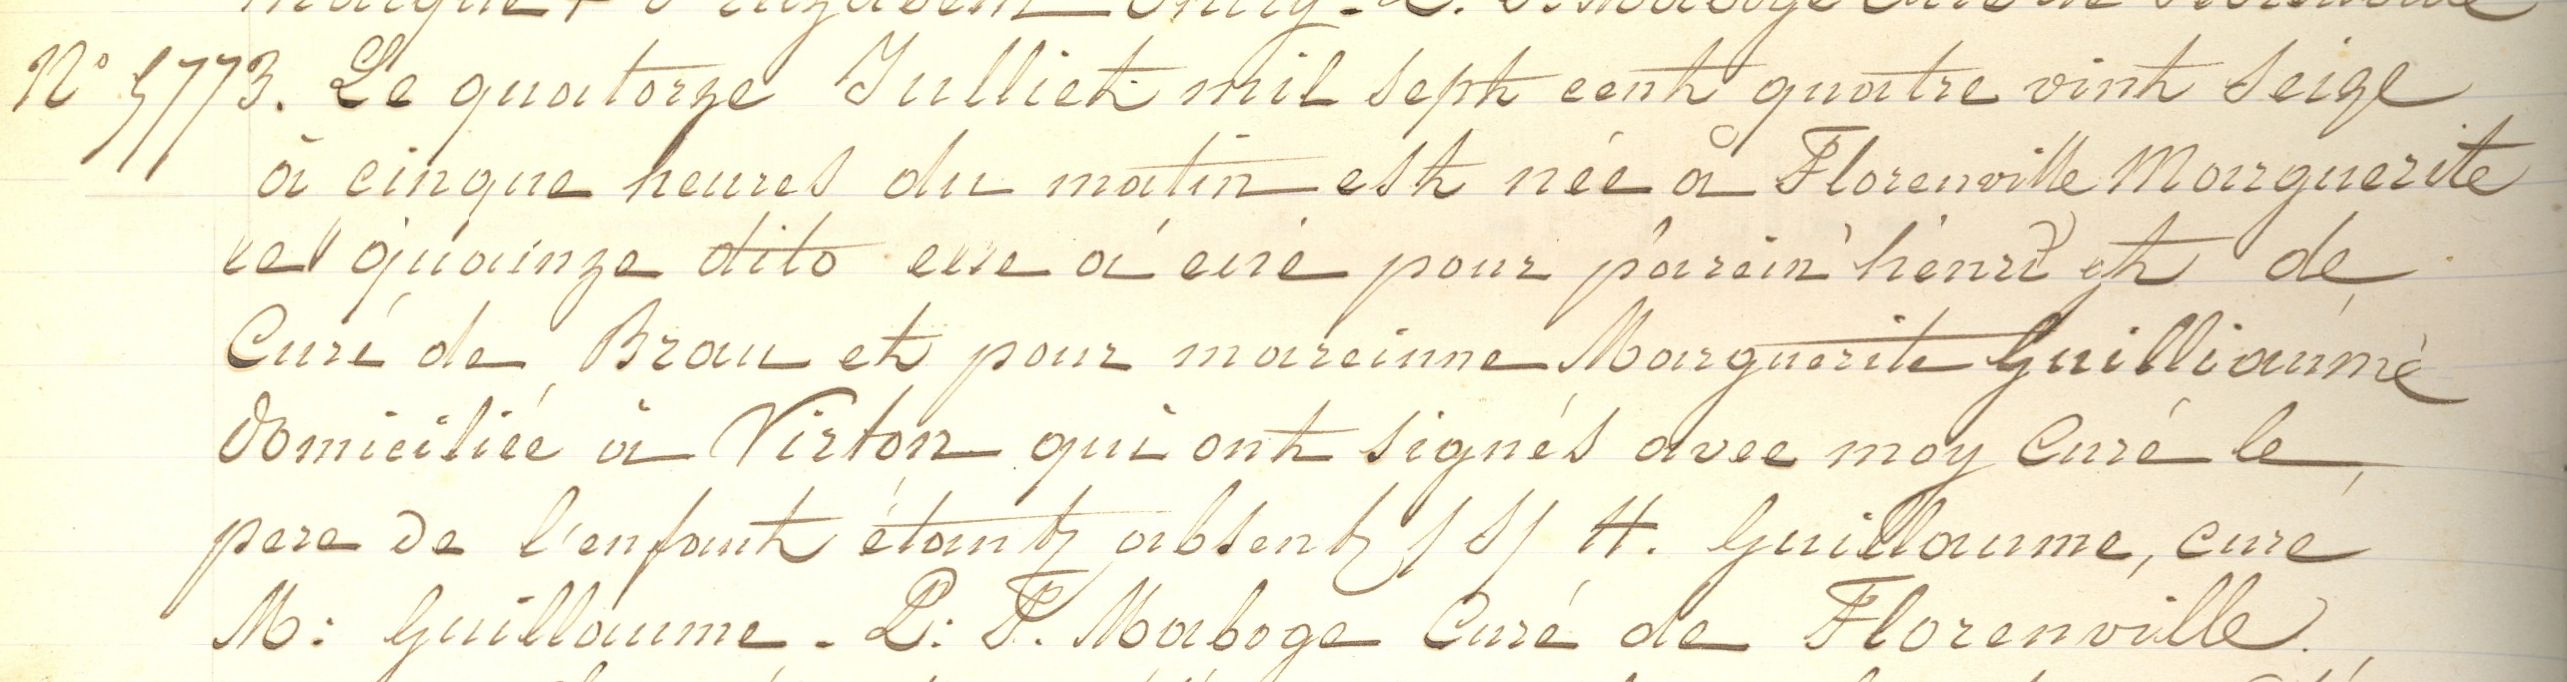 N° 5773. Le quatorze Julliet mil sept cent quatre vint seize
à cinque heures du matin est née à Florenville Marguerite
le quainze dito elle a eue pour parein henri et de
Curé de Brau et pour mareinne Marguerite Guilliaume
Domiciliée à Virton qui ont signés avec moy Curé le
pere de l'enfant étant absent /S/ H. Guillaume, curé
M: Guillaume - L: F. Maboge Curé de Florenville.